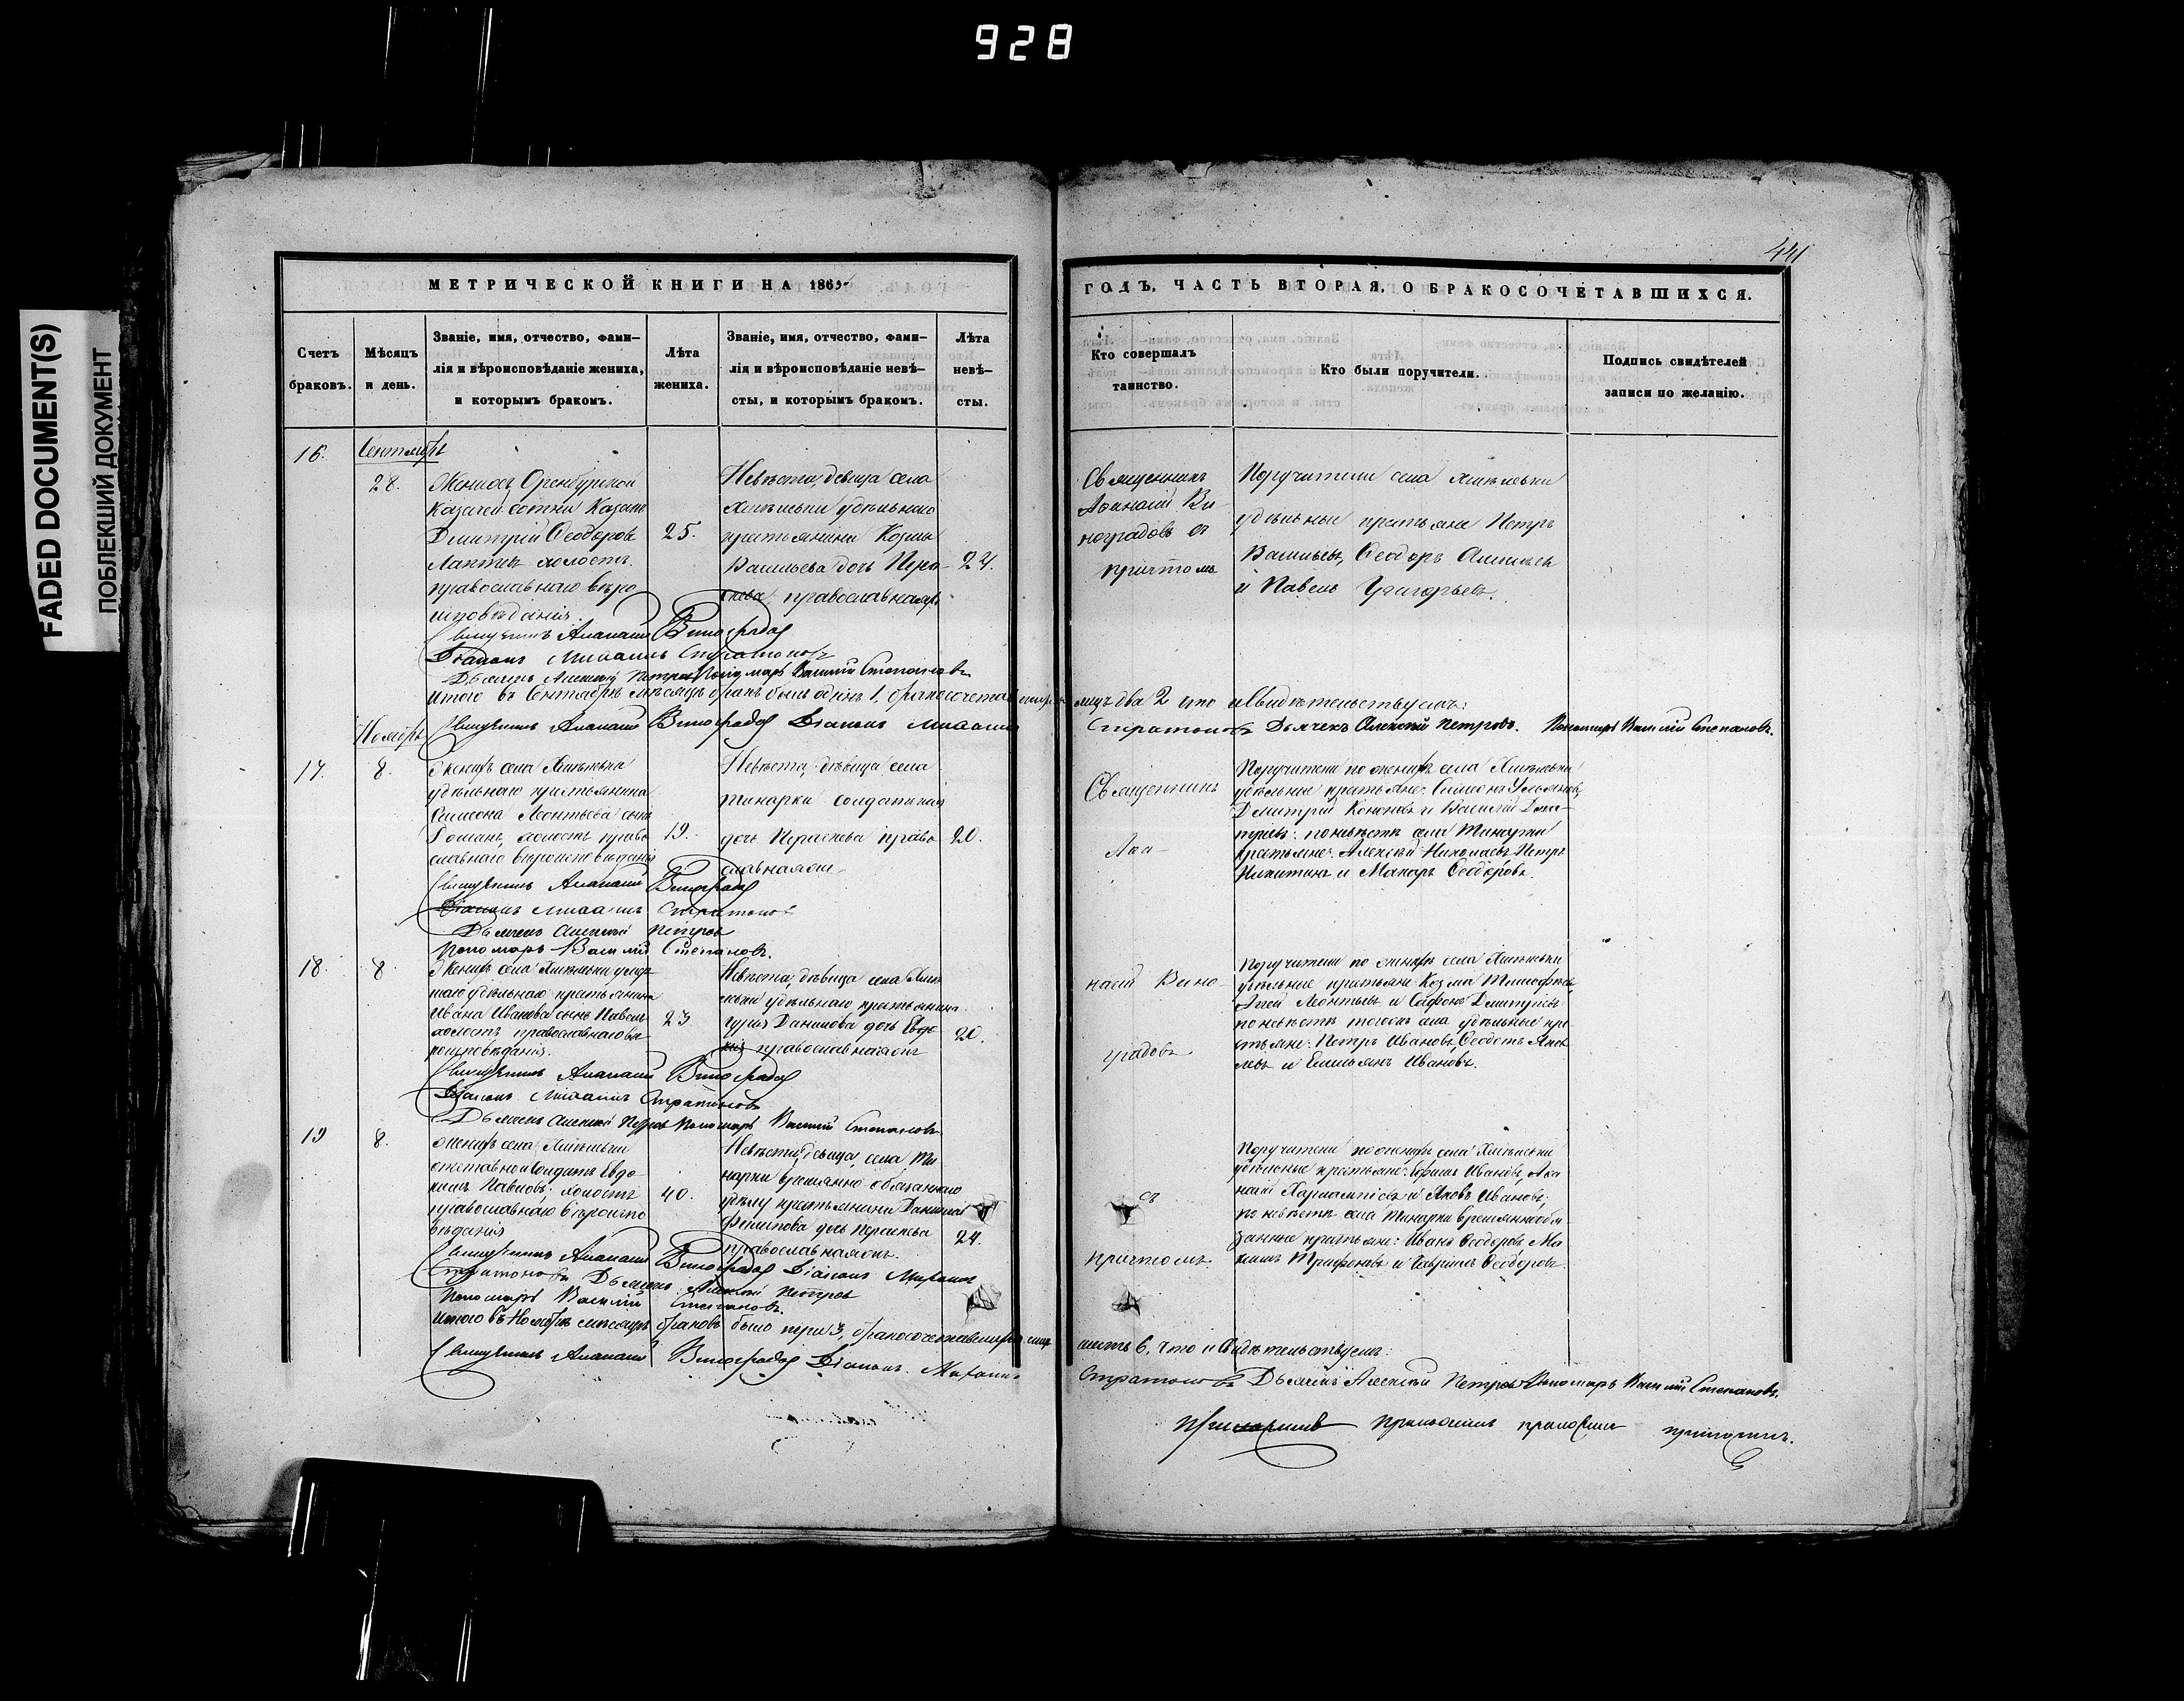 928
FADED DOCUMENT(S)
ПОБЛЕКШИЙ ДОКУМЕНТ
441
МЕТРИЧЕСКОЙ КНИГИ НА 1865
ГОДЪ, ЧАСТЬ ВТОРАЯ, О БРАКОСОЧЕТАВШИХСЯ.
Счетъ
браковъ.
Мѣсяцъ
и день.
Званіе, имя, отчество, фами-
лія и вѣроисповѣданіе жениха,
и которымъ бракомъ.
Лѣта
жениха.
Званіе, имя, отчество, фами-
лія и вѣроисповѣданіе невѣ-
сты, и которымъ бракомъ.
Лѣта
невѣ-
сты.
Кто совершалъ
таинство.
Кто были поручители.
Подпись свидѣтелей
записи по желанію.
16.
Сентябрь
28.
Женихъ, Оренбургской
казачей сотни Казакъ
Дмитрій Ѳеодоровъ
холостъ.
православнаго вѣро
исповѣданія.
25.
Невѣста, девица села
удѣльнаго
крестьянина Козмы
Васильева дочь Пера-
скева православная
24.
Священникъ
Аѳанасій Ви-
ноградовъ съ
причтомъ
Поручители села
удѣльные крестьяне Петръ
Васильевъ, Ѳеодоръ
и Павелъ Григорьевъ.
Священникъ Аѳанасій Виноградовъ
Діаконъ Михаилъ Стратоновъ
Дьячекъ Алексій Петровъ Пономарь Василій Степановъ
итого въ Сентябрѣ мѣсяцѣ бракъ былъ одинъ 1, бракосочетавшихся лицъ два 2 что и свидѣтельствуемъ:
Священникъ Аѳанасій Виноградовъ Діаконъ Михаилъ Стратоновъ Дьячекъ Алексій Петровъ. Пономарь Василій Степановъ.
Ноябрь
17.
8.
Женихъ села
удѣльнаго крестьянина
Симеона Леонтьева сынъ
Романъ, холостъ право
славнаго вѣроисповѣданія
19.
Невѣста, дѣвица села
Тинарки солдатская
дочь Пераскева право
славная
20.
Священникъ
Аѳа-
Поручители по женихѣ села
удѣльные крестьяне: Симеонъ Ульяновъ,
Дмитрій Кононовъ и Василій Дми-
тріевъ: по невѣстѣ села Тинарки
крестьяне: Алексѣй Николаевъ, Петръ
Никитинъ и Макаръ Ѳеодоровъ.
Священникъ Аѳанасій Виноградовъ
Діаконъ Михаилъ Стратоновъ
Дьячекъ Алексій Петровъ
Пономарь Василій Степановъ.
18.
8.
Женихъ села
удѣльнаго крестьянина
Ивана Иванова сынъ Павелъ
холостъ православнаго вѣ
роисповѣданія.
23
Невѣста, дѣвица села
удѣльнаго крестьянина
Гурія Данилова дочь Евдо
кія православная
20.
насій Вино-
градовъ
Поручители по женихѣ села
удѣльные крестьяне: Козма Тимоѳеевъ,
Леонтьевъ и Дмитріевъ
по невѣстѣ тогожъ села удѣльные кре
стьяне: Петръ Ивановъ, Ѳеодотъ
и Емельянъ Ивановъ.
Священникъ Аѳанасій Виноградовъ
Діаконъ Михаилъ Стратоновъ
Дьячекъ Алексій Петровъ Пономарь Василій Степановъ
19
8.
Женихъ села
отставной солдатъ Евдо-
кимъ Павловъ, холостъ
православнаго вѣроиспо
вѣданія
40.
Невѣста, девица, села Ти
нарки временно обязаннаго
крестьянина Даниила
Филипова дочь Пераскева
православная
24.
съ
причтомъ
Поручители по женихѣ села
удѣльные крестьяне: Ивановъ, Аѳа
насій Харлампіевъ и Яковъ Ивановъ;
по невѣстѣ села Тинарки временнообя
занные крестьяне: Иванъ Ѳеодоровъ, Ма
ксимъ Трифоновъ и Гаврилъ Ѳеодоровъ.
Священникъ Аѳанасій Виноградовъ Діаконъ Михаилъ
Стратоновъ Дьячекъ Алексій Петровъ
Пономарь Василій Степановъ.
Итого въ Ноябрѣ мѣсяцѣ браковъ было три 3, бракосочетавшихся лицъ шесть 6, что и свидѣтельствуемъ:
Священникъ Аѳанасій Виноградовъ Діаконъ Михаилъ Стратоновъ Дьячекъ Алексій Петровъ Пономарь Василій Степановъ.